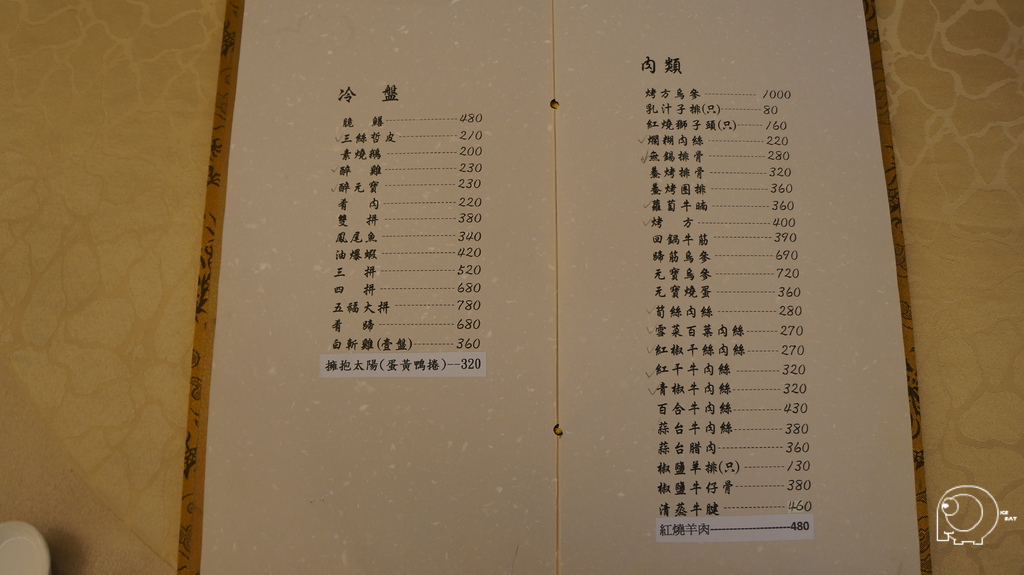 冷 盤
脆 鱔 480
三絲哲皮 210
素燒鵝 200
醉 雞 230
醉元寶 230
肴 肉 220
雙 拼 380
鳳尾魚 340
油爆蝦 420
三 拼 520
四 拼 680
五福大拼 780
肴 蹄 680
白斬雞(壹盤) 360
擁抱太陽(蛋黃鴨捲)--320
肉類
烤方烏參 1000
乳汁子排(只) 80
紅燒獅子頭(只) 160
爛糊肉絲 220
無錫排骨 280
蔥烤排骨 320
蔥烤圈排 360
蘿蔔牛腩 360
烤 方 400
回鍋牛筋 390
蹄筋烏參 690
元寶烏參 720
元寶燒蛋 360
筍絲肉絲 280
雪菜百葉肉絲 270
紅椒干絲肉絲 270
紅干牛肉絲 320
青椒牛肉絲 320
百合牛肉絲 430
蒜台牛肉絲 380
蒜台腊肉 360
椒鹽羊排(只) 130
椒鹽牛仔骨 380
清蒸牛腱 460
紅燒羊肉 480
ICE
EAT